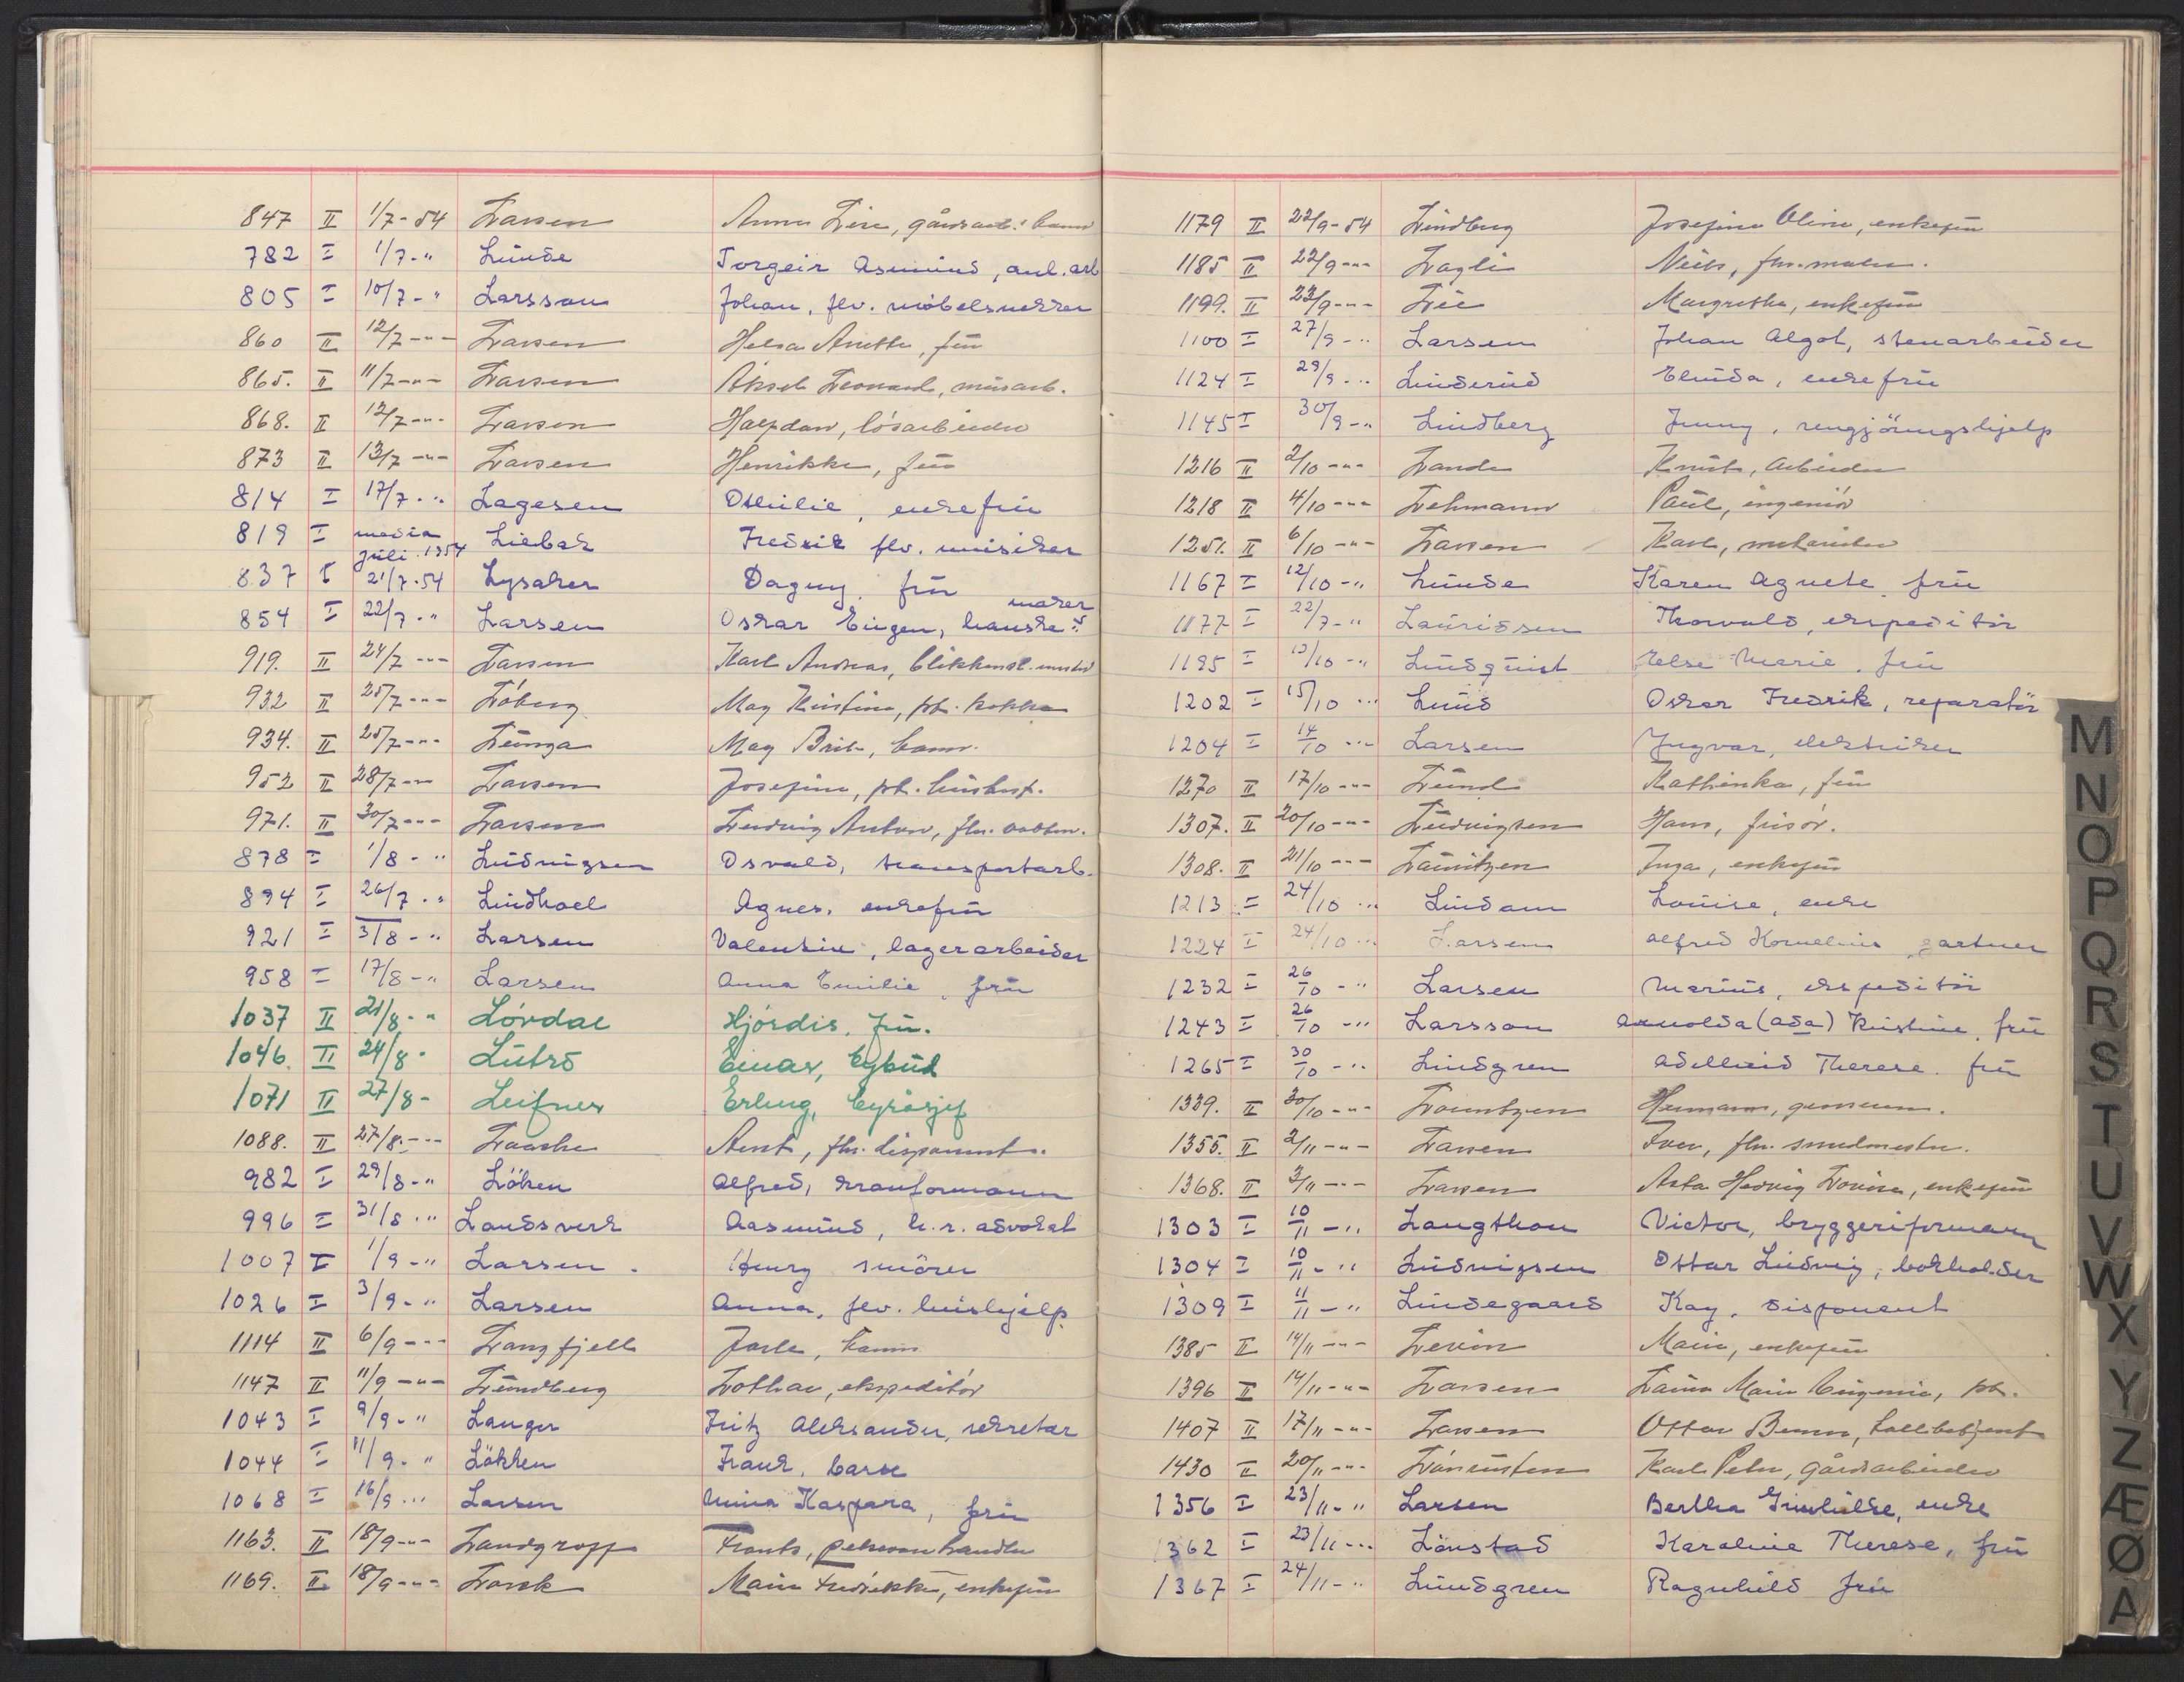 847 II 1/7-54 Larsen Anna Line, gårdarb. barn
782 I 1/7-" Lunde Torgeir Asmund, anl. arb
805 I 10/7-" Larsson Johan, flv. møbelsnekker
860 II 12/7-"- Larsen Helsa Anette, frü
865. II 11/7-"- Larsen Aksel Leonard, murarb.
868. II 12/7-"- Larsen Halfdan, løsarbeider
873 II 13/7-"- Larsen Henrikke, frü
814 I 17/7-" Lagesen Othilie, enkefrü
819 I media juli 1954 Liebak Fredrik flv. musiker
837 I 21/7-54 Lysaker Dagny, frü
854 I 22/7-" Larsen Oskar Eugen, hanskemaker
919. II 24/7-"- Larsen Karl Andreas, blikkensl.mester
932 II 25/7-"- Løberg May Kristine, pt. kokke
934. II 25/7-"- Lunga May Brit, barn.
952 II 28/7-"- Larsen Josefine, pt. hushest.
971. II 30/7-"- Larsen Ludvig Anton, fhv. postm.
878 I 1/8-" Ludvigsen Osvald, transportarb.
894 I 26/7-" Lindhoel Agnes, enkefrü
921 I 3/8-" Larsen Valentin, lagerarbeider
958 I 17/8-" Larsen Anna Emilie, frü
1037 II 21/8-" Løvdal Hjørdis, frü.
1046 II 24/8- Lutro Einar, bybud
1071 II 27/8- Leifner Erling, byråsjef
1088. II 27/8-"- Laache Arnt, fhv. disponent.
982 I 29/8-" Løken Alfred, kranformann
996 I 31/8-" Landsverk Aasmund, h.r. advokat
1007 I 1/9-" Larsen Henry smører
1026 I 3/9-" Larsen Anna, flv. hushjelp
1114 II 6/9-"- Langfjell Jarle, barn
1147 II 11/9-"- Lundberg Lothar, ekspeditør
1043 I 9/9-" Langer Fritz Aleksander, sekretær
1044 I 11/9-" Løkken Frank, barn
1068 I 16/9-" Larsen Mina Kaspara, frü
1163. II 18/9-"- Landgraff Frantz, pelsvarehandler
1169. II 18/9-"- Lorck Marie Fredrikke, enkefrü
1179 II 22/9-54 Lindberg Josefine Oline, enkefrü
1185 II 22/9-"- Lagli Neils, fhv. maler.
1199. II 23/9-"- Lie Margrethe, enkefrü
1100 I 27/9-" Larsen Johan Algot, stenarbeider
1124 I 29/9-" Linderud Elinda, enkefrü
1145 I 30/9-" Lindberg Jenny, rengjøringshjelp
1216 II 2/10-"- Lande Knut, arbeider
1218 II 4/10-"- Lehmann Paul, ingeniør
1251. II 6/10-"- Larsen Karl, mekaniker
1167 I 12/10-" Lunde Karen Agnete, frü
1177 I 22/7-" Lauridsen Thorvald, ekspeditør
1195 I 13/10-" Lindquist Else Marie, frü
1202 I 15/10-" Lund Oskar Fredrik, reparatør
1204 I 14/10-" Larsen Yngvar, elektriker
1270 II 17/10-"- Lund Kathinka, frü
1307. II 20/10-"- Ludvigsen Hans, frisør.
1308. II 21/10-"- Lauritzen Inga, enkefrü
1213 I 24/10-" Lindam Louise, enke
1224 I 24/10-" Larsen Alfred Kornelius, gartner
1232 I 26/10-" Larsen Marius, ekspeditør
1243 I 26/10-" Larsson Arnolda (Ada) Kristine, frü
1265 I 30/10-" Lindgren Adelheid Therese. frü
1339. II 30/10-"- Lorentzen Hermann,
1355. II 2/11-"- Larsen Iver, fhv. smedmester.
1368. II 3/11-"- Larsen Asta Hedvig Lovise, enkefrü
1303 I 10/11-" Langthon Victor, bryggeriformann
1304 I 10/11-" Ludvigsen Ottar Ludvig, bokholder
1309 I 11/11-" Lindegaard Kay, disponent
1385 II 14/11-"- Levin Marie, enkefrü
1396 II 14/11-"- Larsen Laura Marie Eugenie, pt.
1407 II 17/11-"- Larsen Ottar Bernn, tollbetjent
1430 II 20/11-"- Karl Peter, gårdsarbeider
1356 I 23/11-" Larsen Bertha Gunhilde, enke
1362 I 23/11-" Lønstad Karoline Therese, frü
1367 I 24/11-" Lundgren Ragnhild frü
M
N
O
P
Q
R
S
T
U
V
W
X
Y
Z
Æ
Ø
A